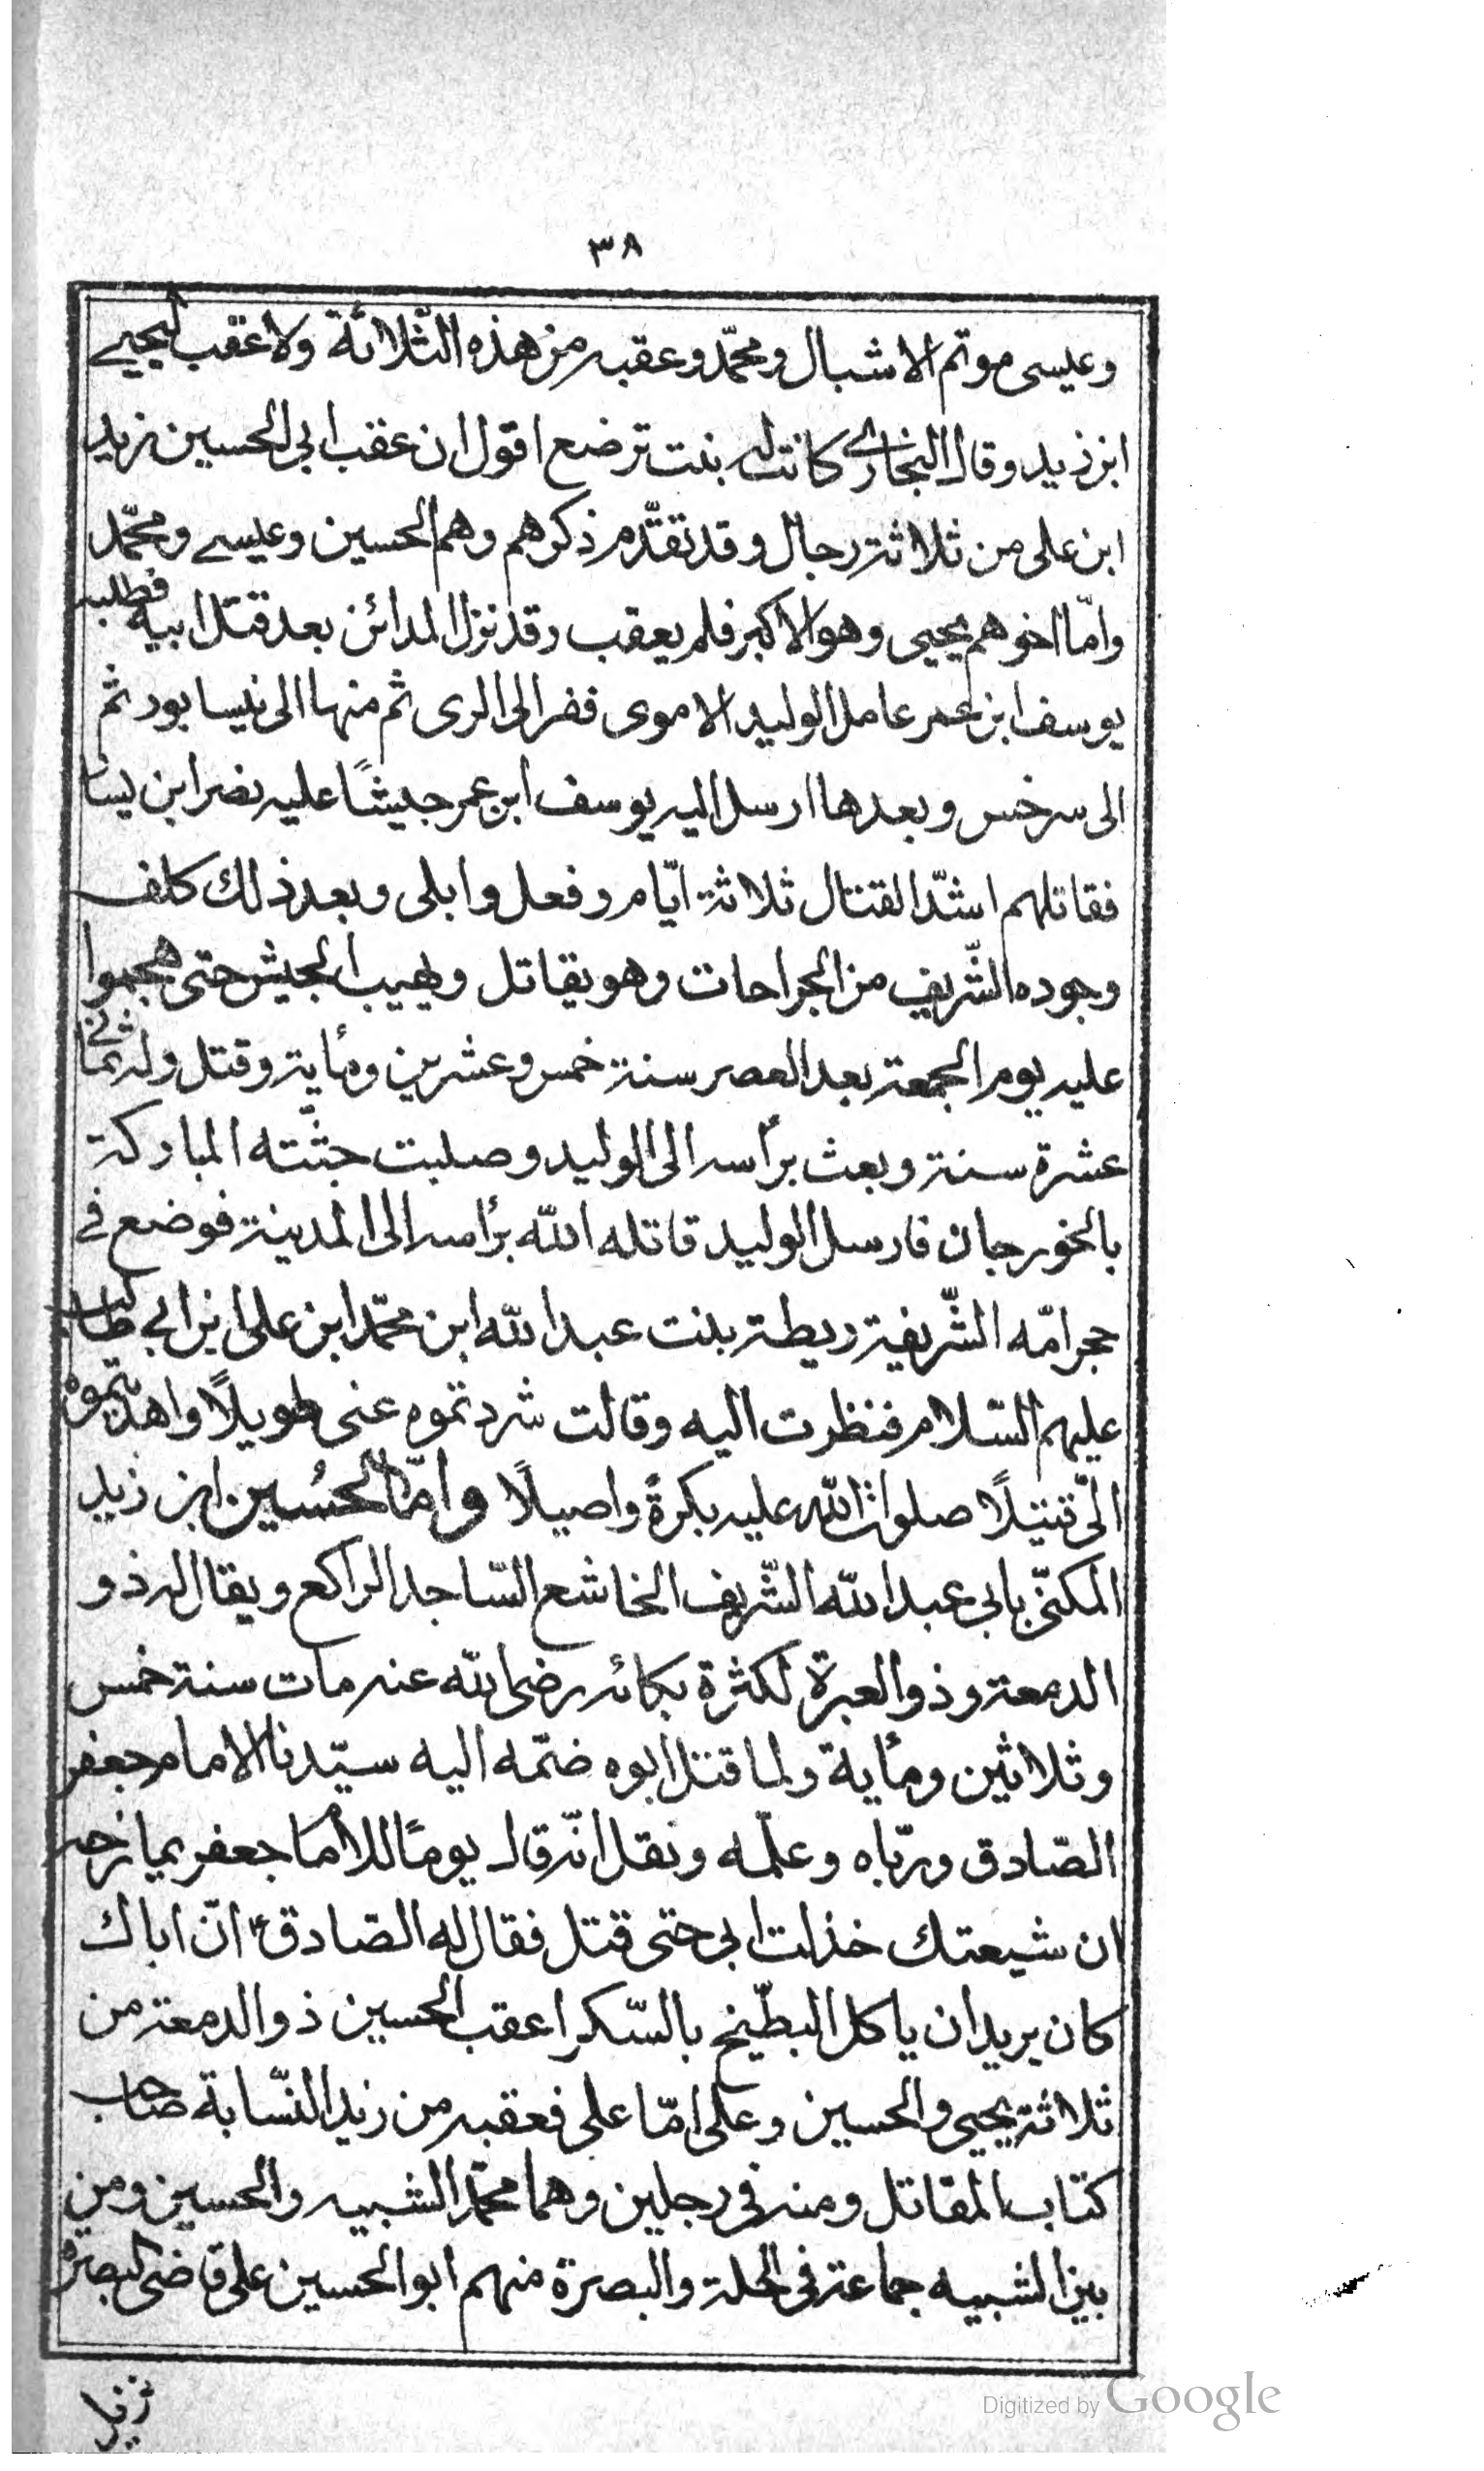 ٣٨
وعيسى موتم الاشبال ومحمّد وعقبه من هذه الثّلاثة ولا عقب ليحيى
ابن زيد وقال البخاري كانت له بنت ترضع اقول ان عقب ابى الحسين زيد
ابن على من ثلاثة رجال وقد تقدّم ذكرهم وهم الحسين وعيسى ومحمّد
وامّا اخوهم يحيى وهو الاكبر فلم يعقب وقد نزل المدائن بعد قتل ابيه فطلبه
يوسف ابن عمر عامل الوليد الاموى ففر الى الرى ثم منها الى نيسابور ثم
الى سرخس وبعدها ارسل اليه يوسف ابن عمر جيشًا عليه نصر ابن يسا
فقاتلهم اشدّ القتال ثلاثة ايّام وفعل وابلى وبعد ذلك كلف
وجوده الشّريف من الجراحات وهو يقاتل ويهيب الجيش حتى هجموا
عليه يوم الجمعة بعد العصر سنة خمس وعشرين ومأية وقتل وله ثمانى
عشرة سنة وبعث برأسه الى الوليد وصلبت جثّته المباركة
بالخورجان فارسل الوليد قاتله الله برأسه الى المدينة فوضع في
حجر امّه الشّريفة ريطة بنت عبد الله ابن محمّد ابن على ابن ابي طالب
عليهم السّلام فنظرت اليه وقالت شردتموه عنى طويلًا واهديتموه
الىّ قتيلًا صلوات الله عليه بكرةً واصيلًا وامّا الحسين ابن زيد
المكنّى بابى عبد الله الشّريف الخاشع السّاجد الراكع ويقال له ذو
الدمعة وذو العبرة لكثرة بكائه رضى الله عنه مات سنة خمس
وثلاثين ومأية ولما قتل ابوه ضمّه اليه سيّدنا الامام جعفر
الصّادق وربّاه وعلّمه ونقل انّه قال يومًا للامام جعفر يمازحه
ان شيعتك خذلت ابى حتى قتل فقال له الصّادق ع انّ اباك
كان يريد ان ياكل البطّيخ بالسّكر اعقب الحسين ذو الدمعة من
ثلاثة يحيى والحسين وعلى امّا على فعقبه من زيد النّسّابة صاحب
كتاب المقاتل ومنه في رجلين وهما محمّد الشبيه والحسين ومن
بين الشبيه جماعة في الحلة والبصرة منهم ابو الحسين على قاضى البصرة
Digitized by Google